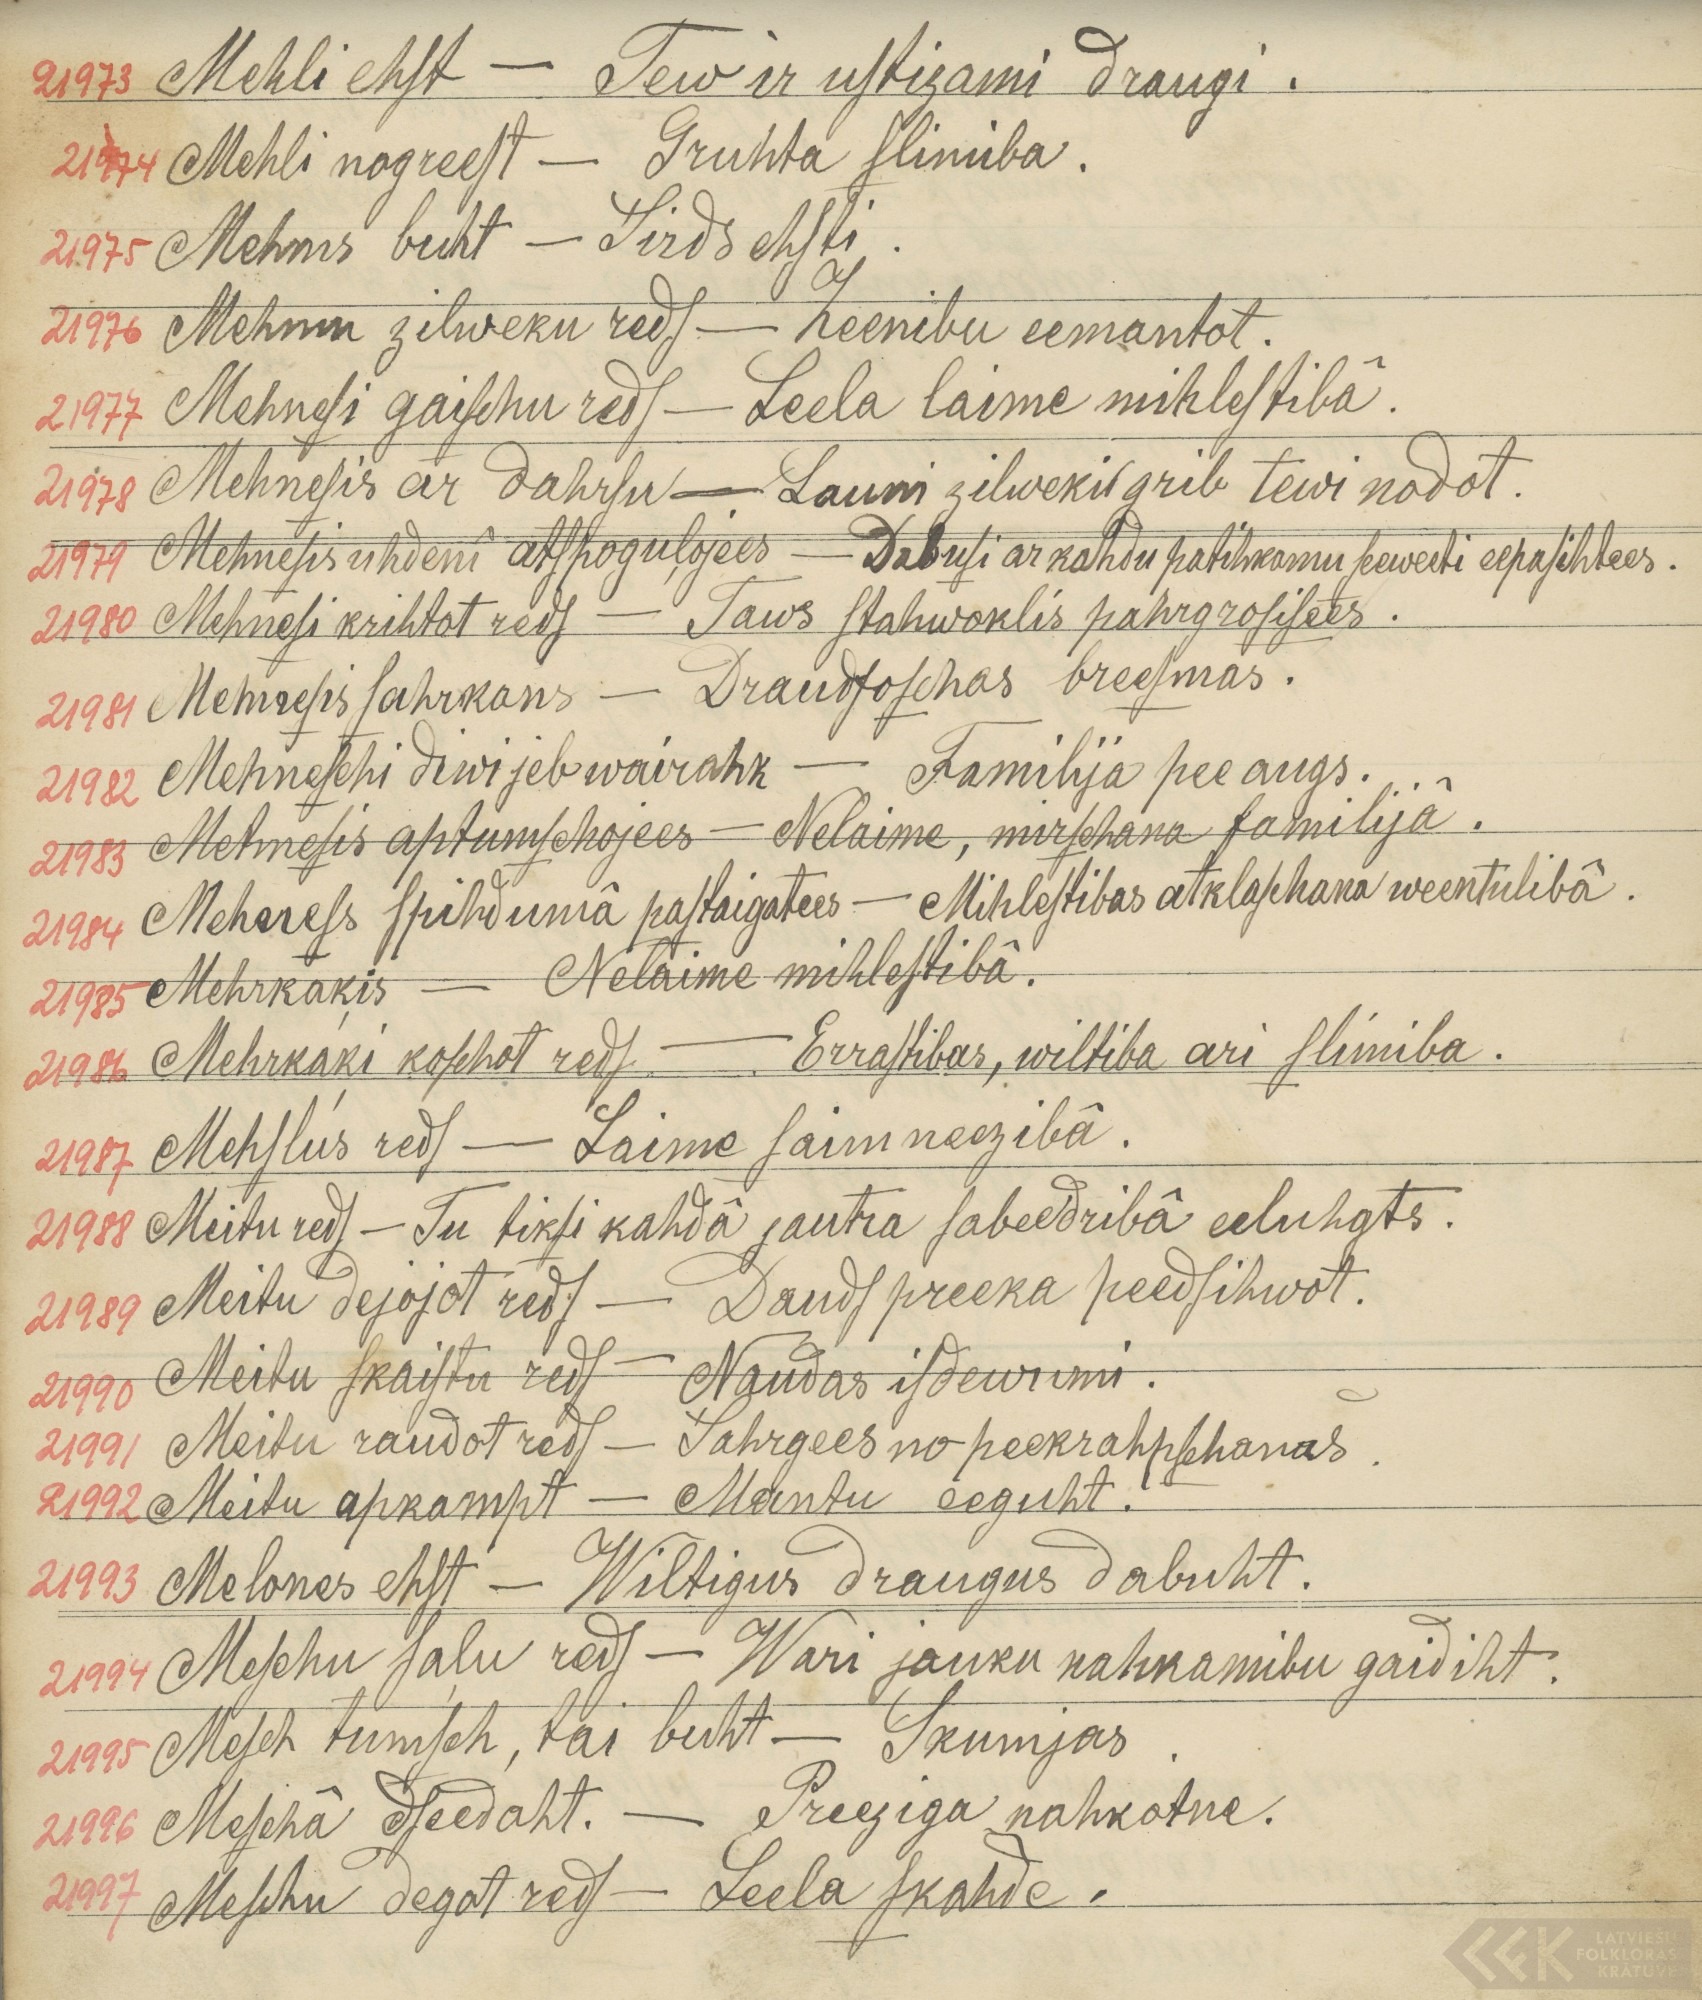 21973 Mehli ehſt — Tew ir uſtizami draugi.
21974 Mehli nogreeſt — Gruhta ſlimiba.
21975 Mehms buht — Sirds ehſti.
21976 Mehmu zilweku redſ — Zeenibu eemantot.
21977 Mehneſi gaiſchu redſ — Leela laime mihleſtibâ.
21978 Mehneſis ar dahrſu — Launi zilweki grib tewi nodot.
21979 Mehneſis uhdenî atſpoguļojees — Dabuſi ar kahdu patihkamu ſeeweeti eepaſihtees.
21980 Mehneſi krihtot redſ — Taws ſtahwoklis pahrgroſiſees.
21981 Mehneſis ſahrkans — Draudſoſchas breeſmas.
21982 Mehneſchi diwi jeb wairahk — Familija pee augs.
21983 Mehneſis aptumſchojees — Nelaime, mirſchana familijâ.
21984 Meheneſs ſpihdumâ paſtaigatees — Mihleſtibas atklaſchana weentulibâ.
21985 Mehrkaķis — Nelaime mihleſtibâ.
21986 Mehrkaķi koſchot redſ — Erraſtibas, wiltiba ari ſlimiba.
21987 Mehſlus redſ — Laime ſaimneezibâ.
21988 Meitu redſ — Tu tikſi kahdâ jautra ſabeedribâ eeluhgts.
21989 Meitu dejojot redſ — Daudſ preeka peedſihwot.
21990 Meitu ſkaiſtu redſ — Naudas iſdewumi.
21991 Meitu raudot redſ — Sahrgees no peekrahpſchanas.
21992 Meitu apkampt — Mantu eeguht.
21993 Melones ehſt — Wiltigus draugus dabuht.
21994 Meſchu ſaļu redſ — Wari jauku nahkamibu gaidiht.
21995 Meſch tumſch, tai buht — Skumjas.
21996 Meſchâ dſeedaht. — Preeziga nahkotne.
21997 Meſchu degot redſ — Leela ſkahde.
LATVIEŠU
FOLKLORAS
KRĀTUVE